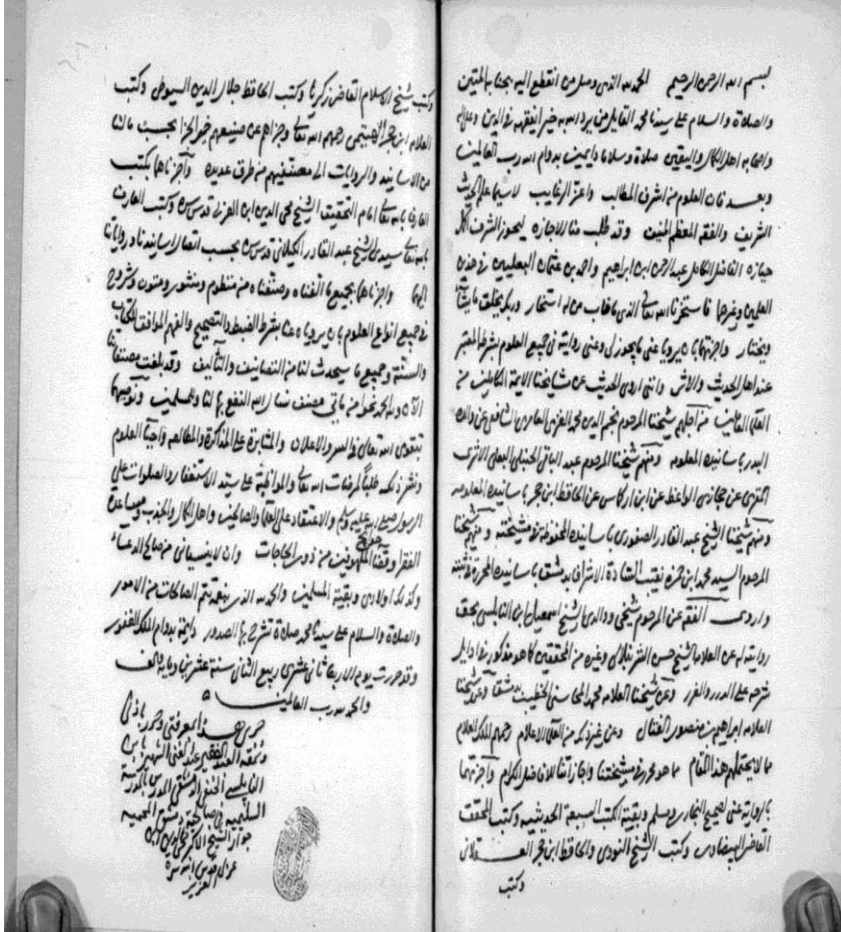 بسم الله الرحمن الرحيم الحمد لله الذي وصل من انقطع اليه بحبله المتين
والصلاة والسلام على سيدنا محمد القايل من يرد الله به خيرا يفقهه في الدين وعلى اله
واصحابه اهل الكمال واليقين صلاة وسلاما دايمين بدوام الله رب العالمين
وبعد فان العلوم من اشرف المطالب واعز الرغايب لاسيما علم الحديث
الشريف والفقه المعظم المنيف وقد طلب منا الاجازه ليحوز الشرف بكل
حيازه الفاضل الكامل عبد الرحمن ابن ابراهيم واحمد بن عثمان البعليين في هذين
العلمين وغيرها فاستخرنا الله تعالى الذي ما خاب من له استخار وربك يخلق ما يشاء
ويختار واجزتهما بان يرويا عني ما يجوز لي وعني روايته في جميع العلوم بشرطه المعتبر
عند اهل الحديث والاثر وانني اروي الحديث عن مشايخنا الايمة الكاملين من
العلماء العاملين من اجلهم شيخنا المرحوم نجم الدين محمد الغزي العامري الشافعي عن والده
البدر باسانيده المعلومه ومنهم شيخنا المرحوم عبد الباقي الحنبلي البعلي الاثري
عن حجازي الواعظ عن ابن اركماس عن الحافظ ابن حجر باسانيده المعلومه
ومنهم شيخنا الشيخ عبد القادر الصفوري باسانيده المحفوظة في مشيخته ومنهم شيخنا
المرحوم السيد محمد ابن حمزه نقيب السادة الاشراف بدمشق باسانيده المحررة في ثبته
واروي الفقه عن المرحوم شيخي ووالدي الشيخ اسمعيل ابن النابلسي بحق
روايته له عن العلامه الشيخ حسن الشرنبلالي وغيره من المحققين كما هو مذكور في اوايل
شرحه على الدرر والغرر وعن شيخنا العلامه محمد المحاسني الخطيب بدمشق وعن شيخنا
العلامه ابراهيم بن منصور الفتال وعن غير ذلك من العلماء الاعلام رحمهم الملك العلام
مما لا يحتملهم هذا المقام مما هو محرر في مشيختنا واجازاتنا للافاضل الكرام واجزتهما
بالرواية عني لصحيح البخاري ومسلم وبقية الكتب السبعة الحديثيه وكتب المحقق
القاضي البيضاوي وكتب الشيخ النووي والحافظ ابن حجر العسقلاني
وكتب
وكتب شيخ الاسلام القاضي زكريا وكتب الحافظ جلال الدين السيوطي وكتب
العلامه ابن حجر الهيتمي رحمهم الله تعالى وجزاهم عن صنيعهم خير الجزا بحسب مالنا
من الاسانيد والروايات الى مصنفيهم من طرق عديده واجزناهما بكتب
العارف بالله تعالى امام التحقيق الشيخ محي الدين ابن العربي قدس سره وكتب العارف
بالله تعالى سيدي الشيخ عبد القادر الكيلاني قدس سره بحسب اتصال اسانيدنا وروايتنا
اليهما واجزناهما بجميع ما الفناه وصنفناه من منظوم ومنثور ومتون وشروح
في جميع انواع العلوم بان يرويا ه عنا بشرط الضبط والتصحيح والفهم الموافق للكتاب
والسنة وجميع ما سيحدث لنا من التصانيف والتآليف وقد بلغت مصنفاتنا
الآن ولله الحمد نحوا من مائتي مصنف نسال الله النفع بها لنا وللمسلمين ونوصيهما
بتقوى الله تعالى في السر والاعلان والمثابرة على المذاكرة والمطالعه واحياء العلوم
ونشر ذلك طلبا لمرضات الله تعالى والمواظبة على سيد الاستغفار والصلوات على
الرسول صلى الله عليه وسلم والاعتقاد على العلماء والصالحين واهل الكمال والجذب ومساعدة
الفقرا وقضا حوايج الملهوفين من ذوي الحاجات وان لا ينسياني من صالح الدعاء
وكذلك اولادي وبقية المسلمين والحمد لله الذي بنعمته تتم الصالحات من الامور
والصلاة والسلام على سيدنا محمد صلاة تشرح بها الصدور دايمة بدوام الملك الغفور
وقد حررت يوم الاربعا ثاني عشري ربيع الثاني سنة عشرين وماية والف
والحمد لله رب العالمين
جرى هذا بمعرفتي وحرر باذني
ونمقه العبد الفقير عبد الغني الشهير بابن
النابلسي الحنفي الدمشقي المدرس بالمدرسة
السليميه في صالحية دمشق المحميه
جوار الشيخ الاكبر محي الدين ابن
عربي قدس الله سره
العزيز